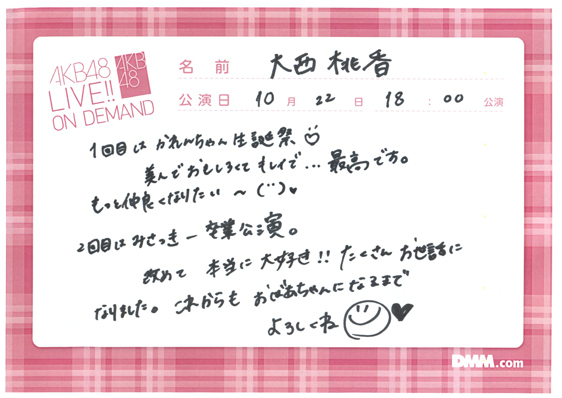 AKB48
LIVE!!
ON DEMAND
AKB
48
名前 大西桃香
公演日 10月22日 18:00公演
1回目は かれんちゃん生誕祭
美人でおもしろくてキレイで…最高です。
もっと仲良くなりたい〜(¨)♥
2回目はみさっきー卒業公演。
改めて 本当に大好き!! たくさん お世話に
なりました。これからも おばあちゃんになるまで
よろしくね
DMM.com